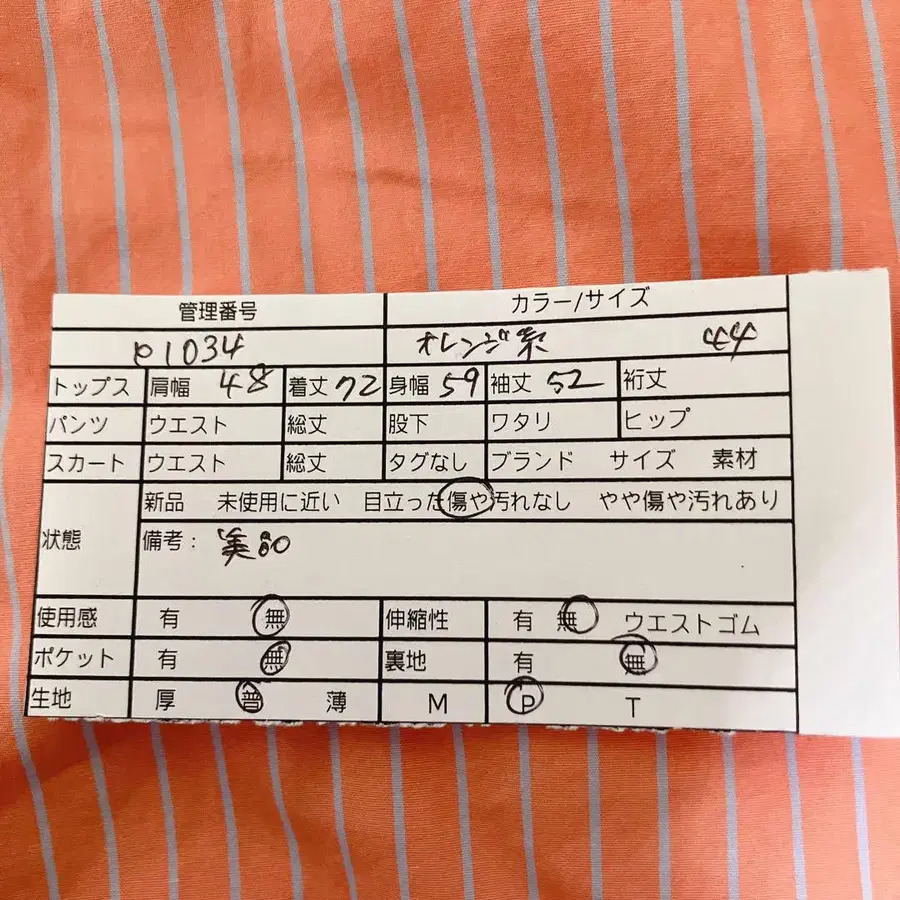 管理番号 カラー/サイズ
P1034 オレンジ系 44
トップス 肩幅 48 着丈 72 身幅 59 袖丈 52 裄丈
パンツ ウエスト 総丈 股下 ワタリ ヒップ
スカート ウエスト 総丈 タグなし ブランド サイズ 素材
状態 新品 未使用に近い 目立った傷や汚れなし やや傷や汚れあり
備考: 美品
使用感 有 無 伸縮性 有 無 ウエストゴム
ポケット 有 無 裏地 有 無
生地 厚 普 薄 M P T